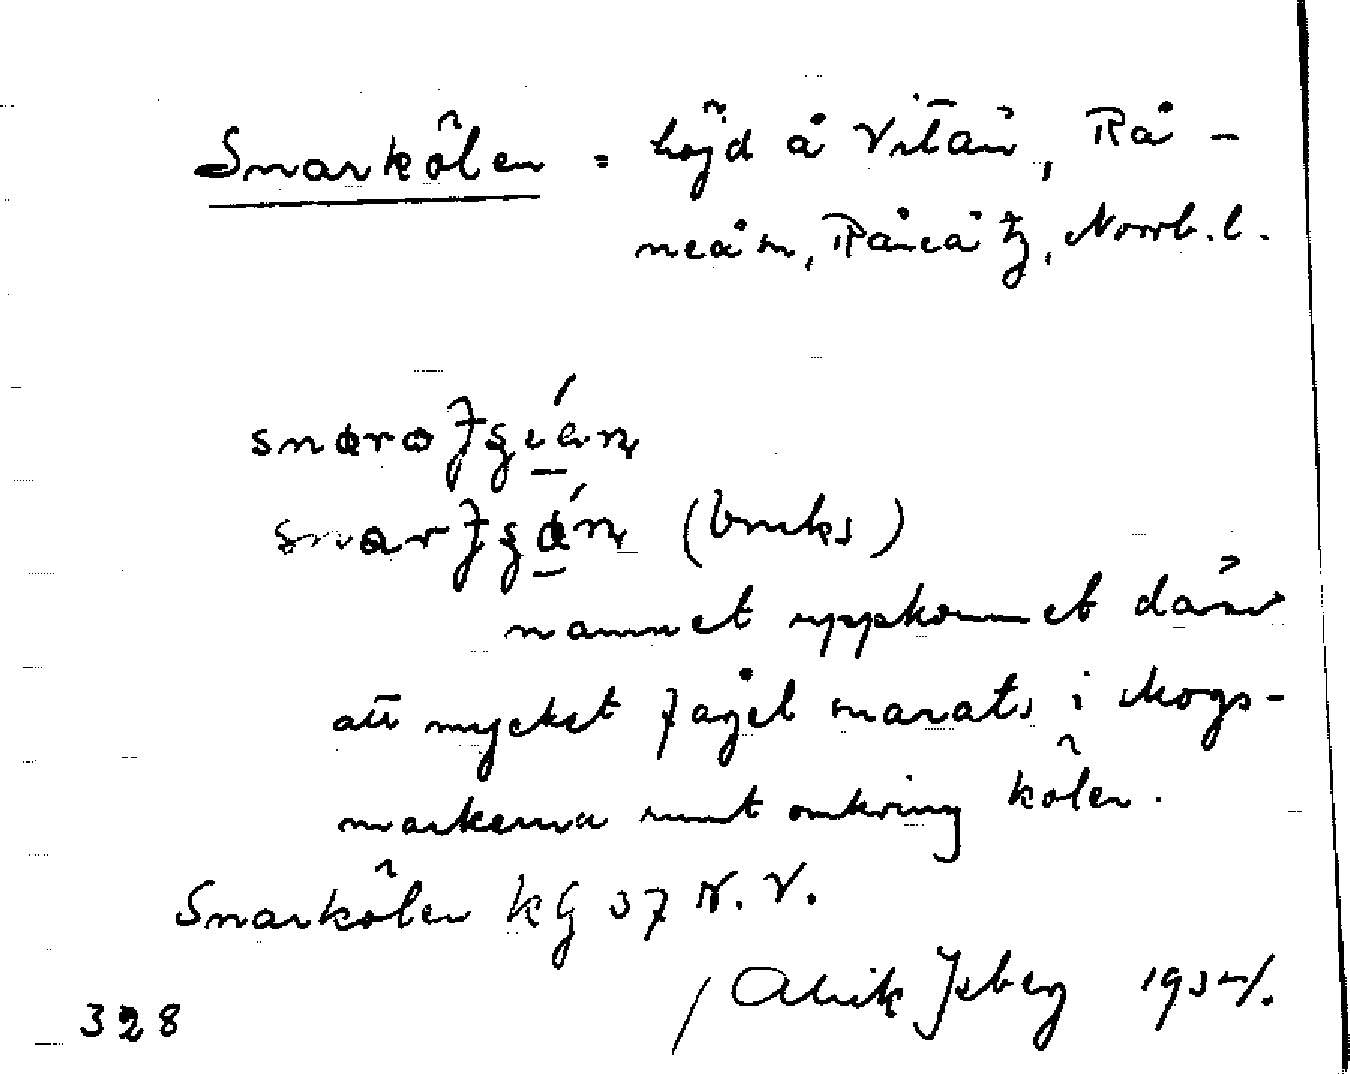 Snarkölen = höjd å Vitån, Rå-
neå sn, Råneå tg, Norrb. l.
(bruks)
namnet uppkommet därav
att mycket fågel snarats i skogs-
markerna runt omkring kölen.
Snarkölen KG 37 N.V.
/ Alrik Isberg
328